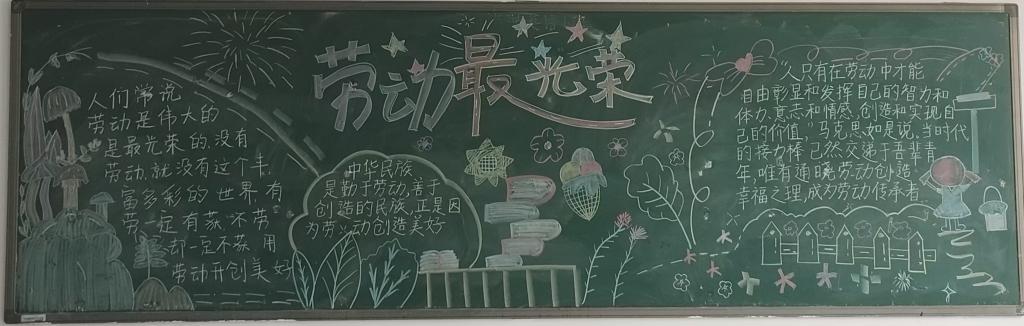 劳动最光荣
人们常说
劳动是伟大的
是最光荣的,没有
劳动,就没有这个丰
富多彩的世界有
劳一定有获,不劳
却一定不获.用
劳动开创美好
中华民族
是勤于劳动,善于
创造的民族.正是因
为劳动创造美好
“人只有在劳动中才能
自由彰显和发挥自己的智力和
体力、意志和情感,创造和实现自
己的价值.”马克思如是说.当时代
的接力棒已然交递于吾辈青
年,唯有通晓劳动创造
幸福之理,成为劳动传承者